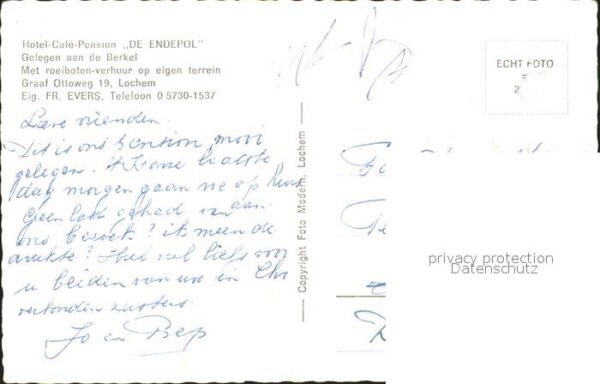 Hotel-Café-Pension „DE ENDEPOL"
Gelegen aan de Berkel
Met roeiboten-verhuur op eigen terrein
Graaf Ottoweg 19, Lochem
Eig. FR. EVERS, Telefoon 0 5730-1537
ECHT FOTO
Lieve vrienden.
Dit is ons pension, mooi
gelegen. 't Is onze laatste
dag morgen gaan we op huis
Geen last gehad van aan
ons bezoek? ik meen de
drukte? Heel veel liefs voor
u beiden van uw in Chr
verbonden zusters.
Jo en Bep
Copyright Foto Modern, Lochem
privacy protection
Datenschutz